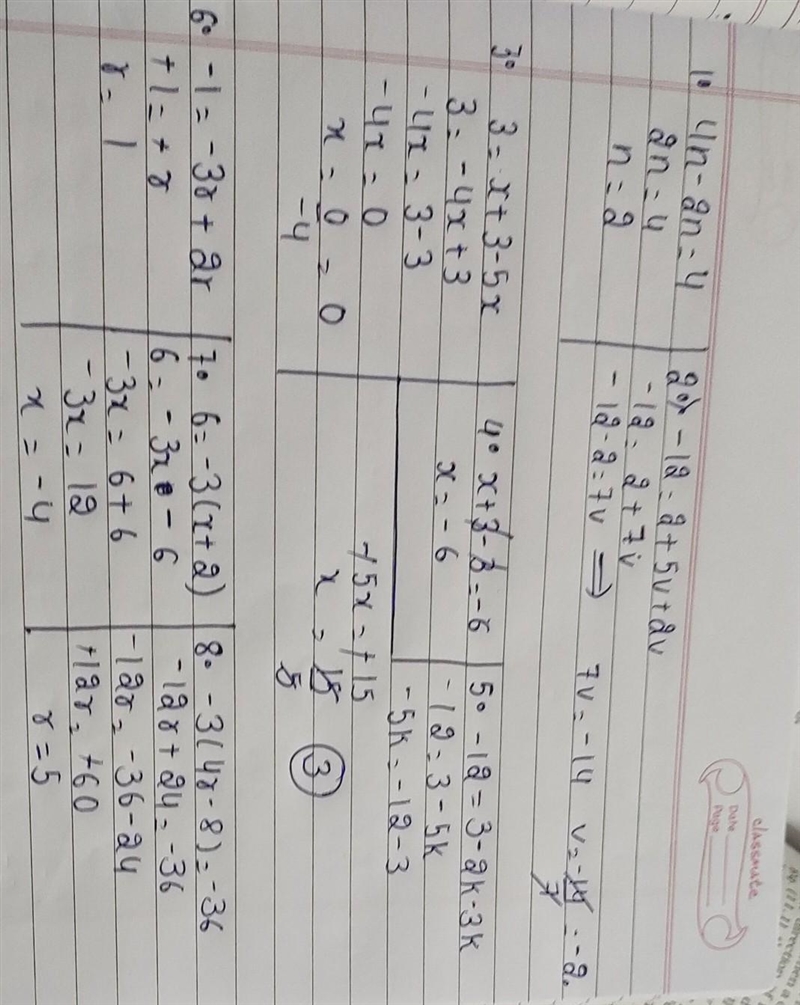 classmate
Date
Page
1. 4n - 2n = 4
2n = 4
n = 2
2. -12 = 2 + 5v + 2v
-12 = 2 + 7v
-12 - 2 = 7v ⇒ 7v = -14 v = -14/7 = -2.
3. 3 = x + 3 - 5x
3 = -4x + 3
-4x = 3 - 3
-4x = 0
x = 0/-4 = 0
4. x + 3 - 3 = -6
x = -6
5. -12 = 3 - 2k - 3k
-12 = 3 - 5k
-5k = -12 - 3
+5x = +15
x = 15/5 3
6. -1 = -3r + 2r
+1 = +r
r = 1
7. 6 = -3(x + 2)
6 = -3x - 6
-3x = 6 + 6
-3x = 12
x = -4
8. -3(4r - 8) = -36
-12r + 24 = -36
-12r = -36 - 24
+12r = +60
r = 5